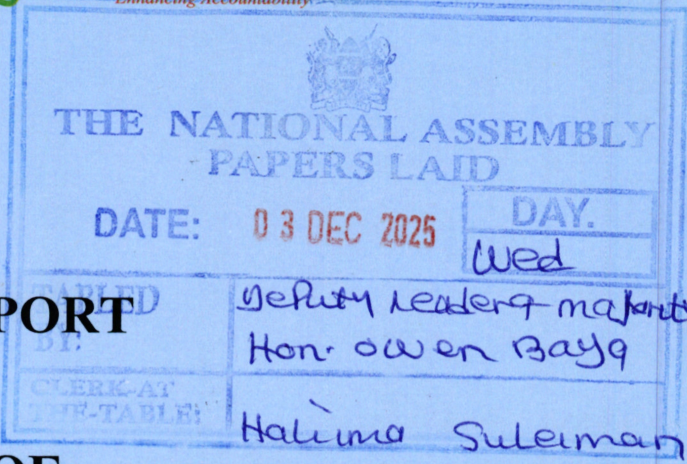 Enhancing Accountability
THE NATIONAL ASSEMBLY
PAPERS LAID
DATE: 03 DEC 2025
DAY.
Wed
PORT
TABLED
BY:
Deputy Leader of majority
Hon. Owen Baya
CLERK-AT
THE-TABLE:
Halima Suleiman
OF